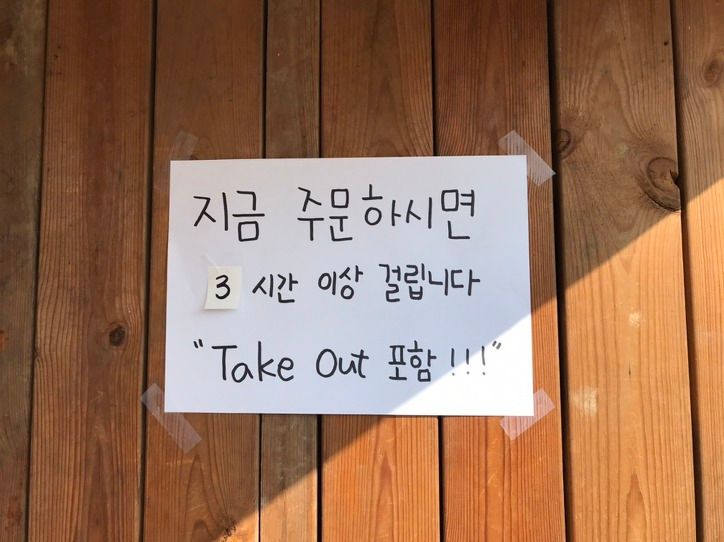 지금 주문하시면
3 시간 이상 걸립니다
"Take Out 포함!!!"